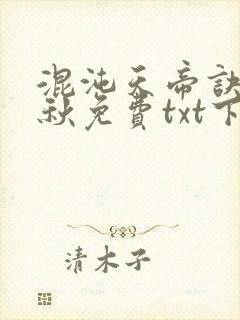 混沌天帝訣
秋免費txt下
清木子